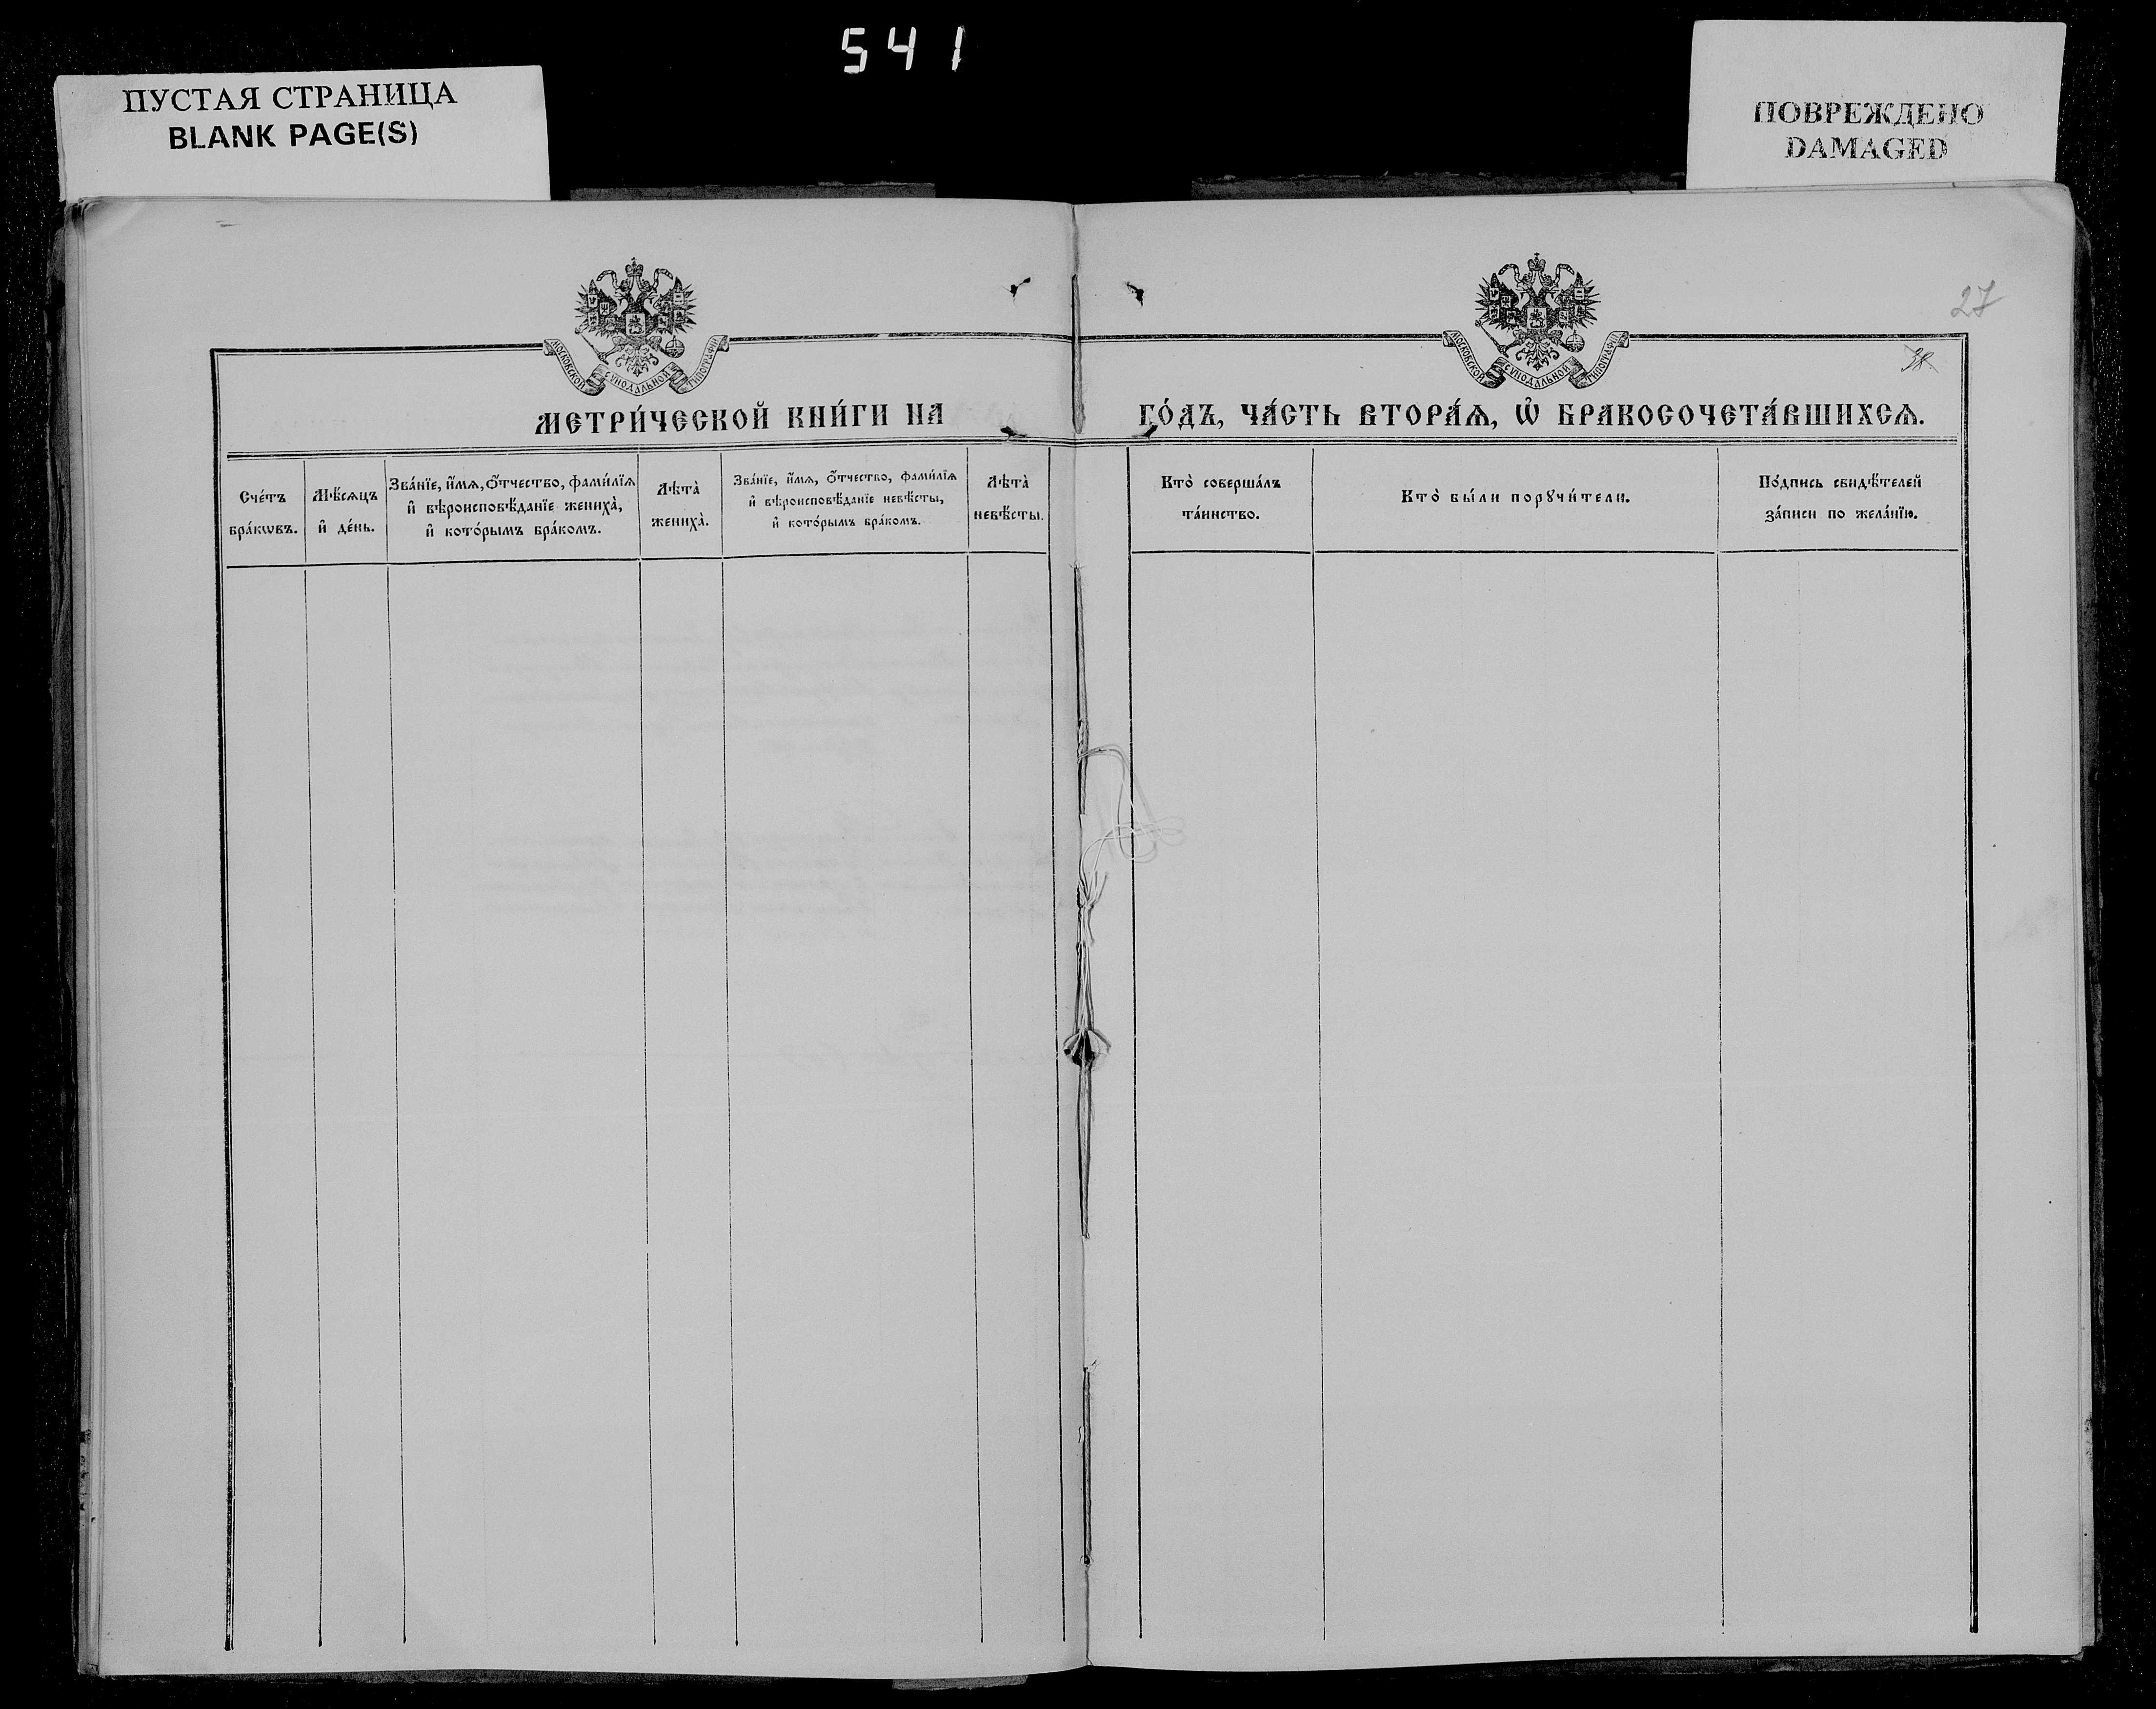 541
ПУСТАЯ СТРАНИЦА
BLANK PAGE(S)
ПОВРЕЖДЕНО
DAMAGED
27
38
МОСКОВСКОЙ СѴНОДАЛЬНОЙ ТИПОГРАФІИ
МОСКОВСКОЙ СѴНОДАЛЬНОЙ ТИПОГРАФІИ
МЕТРИ́ЧЕСКОЙ КНИ́ГИ НА
ГО́ДЪ, ЧА́СТЬ ВТОРА́Ѧ, Ѽ БРАКОСОЧЕТА́ВШИХСѦ.
Сче́тъ
бра́кѡвъ.
Мѣ́сѧцъ
и҆ де́нь.
Зва́нїе, и҆́мѧ, ѻ҆́тчество, фами́лїѧ
и҆ вѣроисповѣ́данїе жениха̀,
и҆ кото́рымъ бра́комъ.
Лѣта̀
жениха̀.
Зва́нїе, и҆́мѧ, ѻ҆́тчество, фами́лїѧ
и҆ вѣроисповѣ́данїе невѣ́сты,
и҆ кото́рымъ бра́комъ.
Лѣта̀
невѣ́сты.
Кто̀ соверша́лъ
та́инство.
Кто̀ бы́ли порꙋчи́тели.
По́дпись свидѣ́телей
за́писи по жела́нїю.